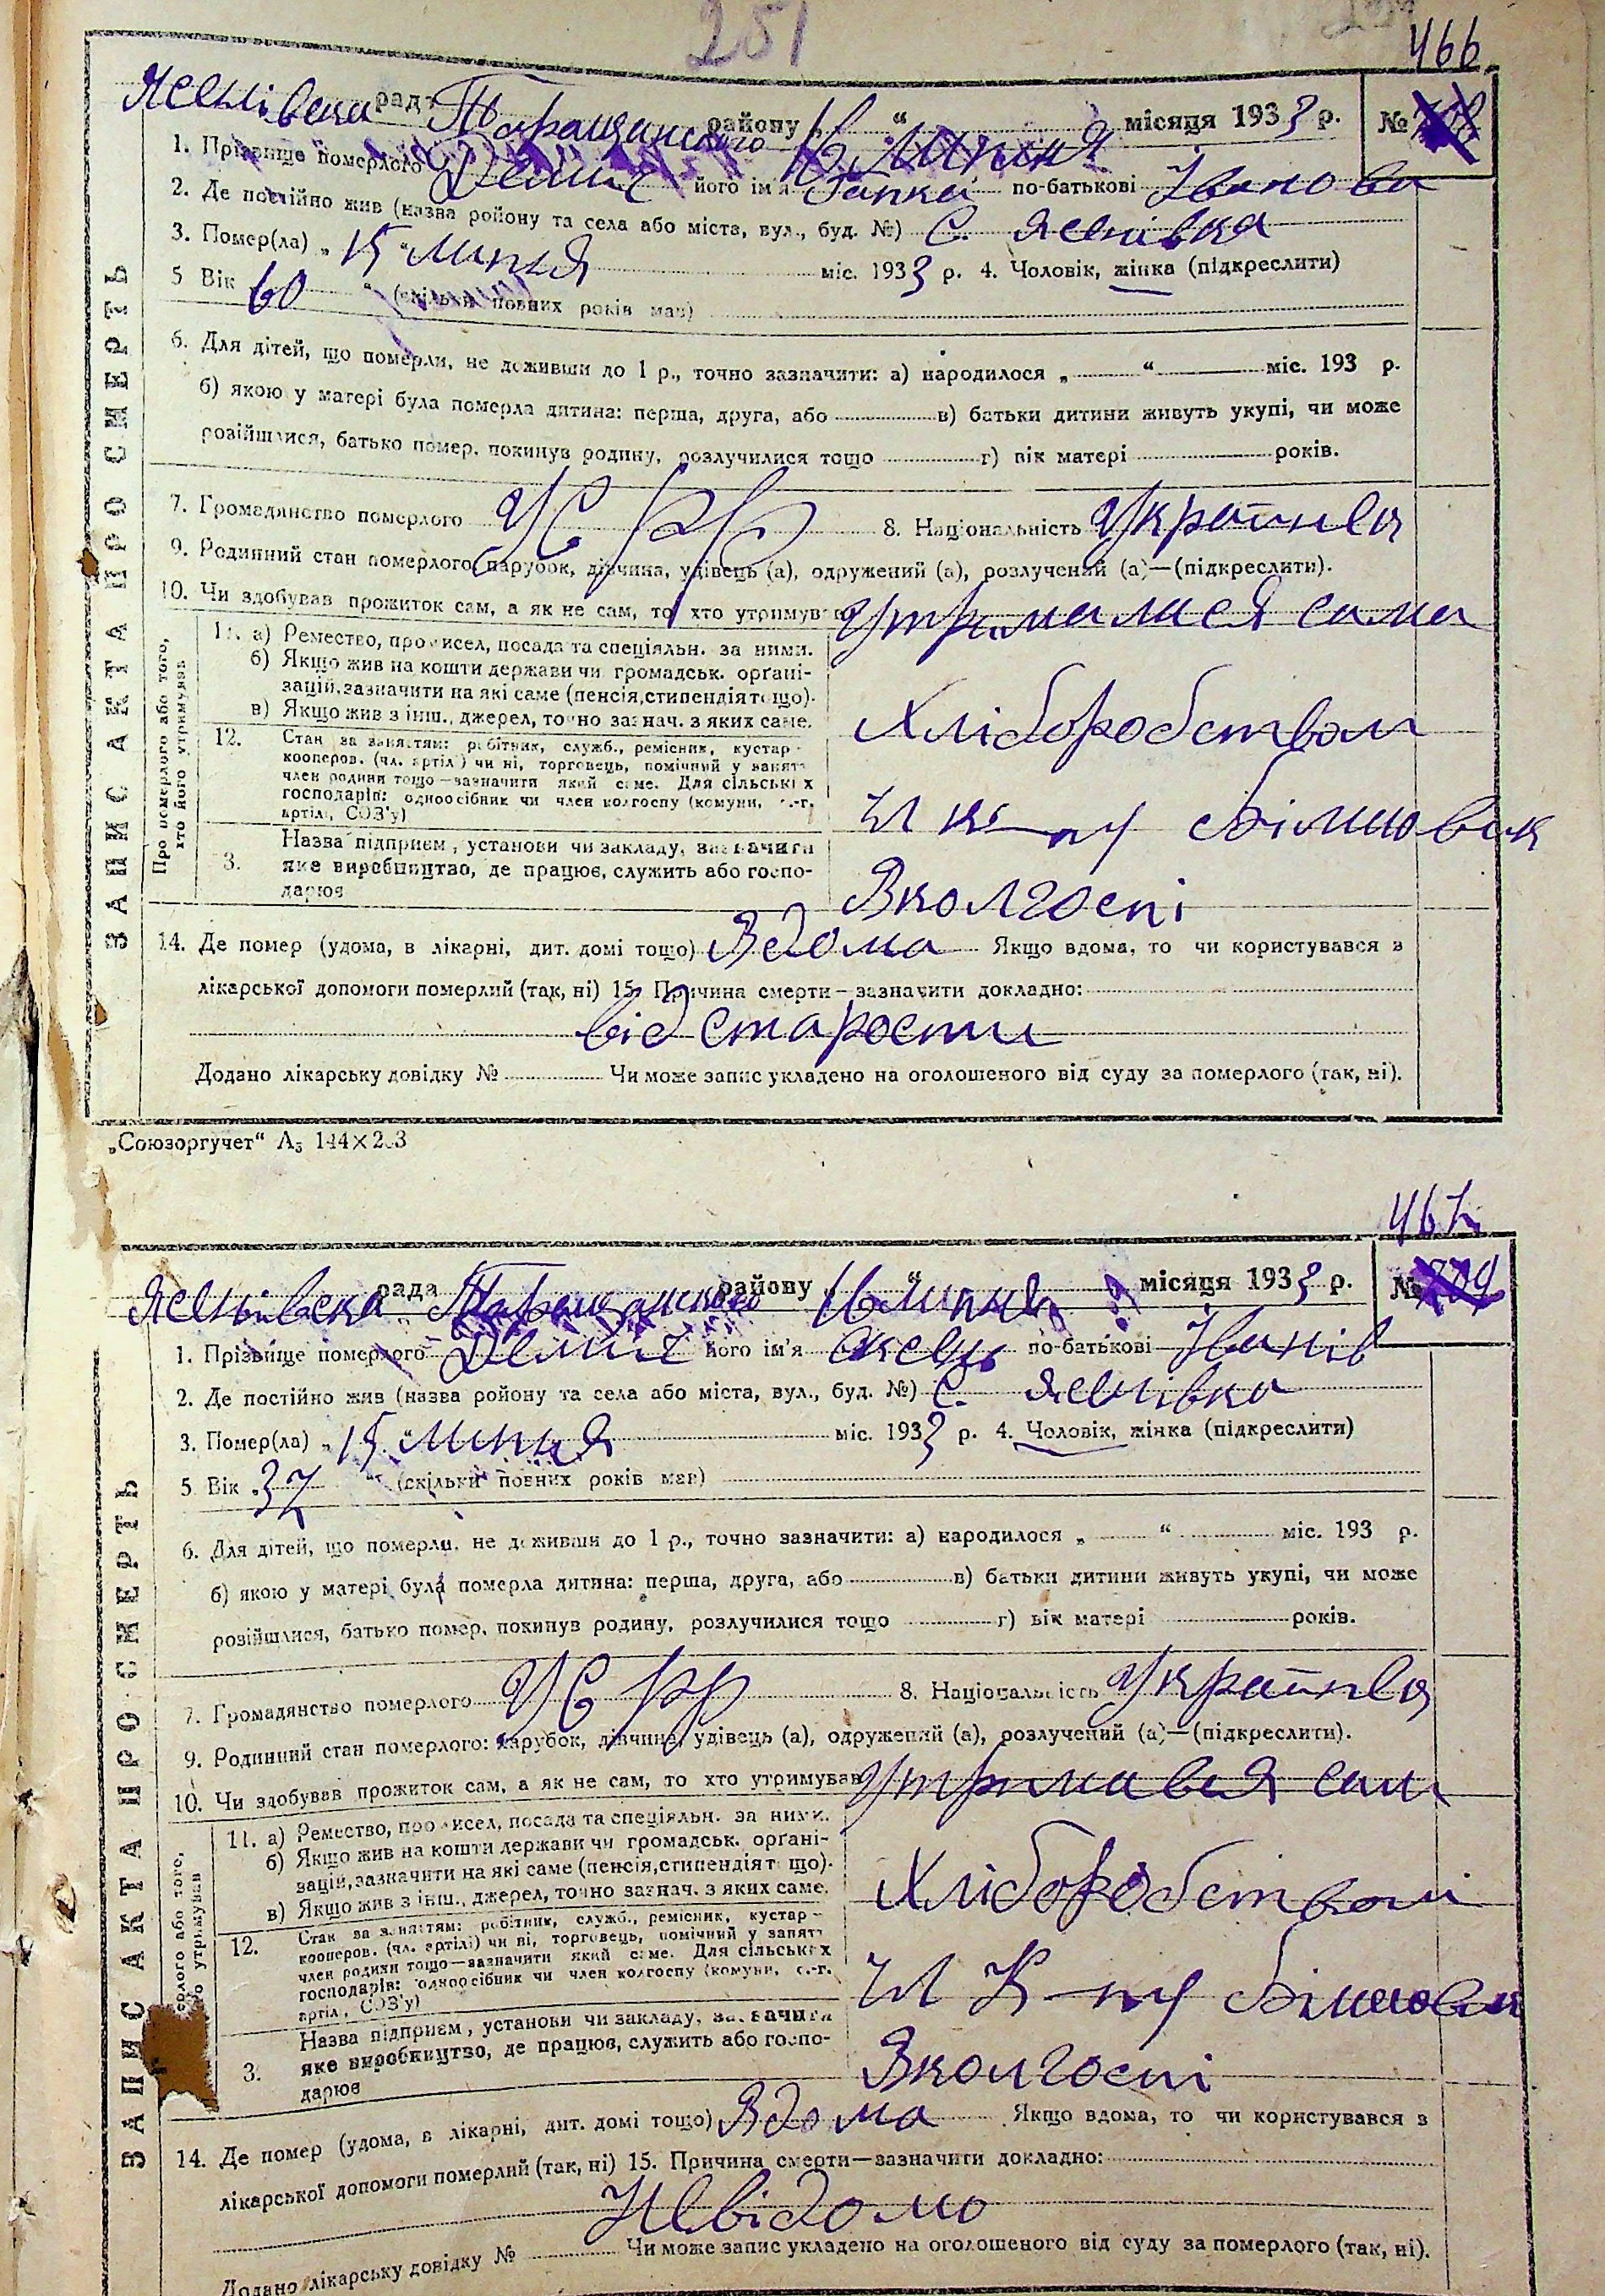 251
466
Яснівська рада Таращанського району „16“ Липня місяця 1933 р. №
1. Прізвище померлого Демич його ім'я Гапка по-батькові Іванова
2. Де постійно жив (назва району та села або міста, вул., буд. №) С. Яснівка
3. Помер(ла) „15“ липня міс. 1933 р. 4. Чоловік, жінка (підкреслити)
5 Вік 60 (скільки повних років мав)
6. Для дітей, що померли, не доживши до 1 р., точно зазначити: а) народилося „ “ міс. 193 р.
б) якою у матері була померла дитина: перша, друга, або в) батьки дитини живуть укупі, чи може
розійшлися, батько помер, покинув родину, розлучилися тощо г) вік матері років.
7. Громадянство померлого УСРР 8. Національність Українка
9. Родинний стан померлого: парубок, дівчина, удівець (а), одружений (а), розлучений (а)—(підкреслити).
10. Чи здобував прожиток сам, а як не сам, то хто утримував Утрималися сама
ЗАПИС АКТА ПРО СМЕРТЬ
Про померлого або того, хто його утримував
11. а) Ремество, промисел, посада та спеціяльн. за ними.
б) Якщо жив на кошти держави чи громадськ. орґані-
зацій, зазначити на які саме (пенсія, стипендія тощо).
в) Якщо жив з інш., джерел, точно зазнач. з яких саме.
Хліборобством
12. Стан за заняттям: робітник, служб., ремісник, кустар-
кооперов. (чл. артілі) чи ні, торговець, помічний у занятт.
член родини тощо—зазначити який саме. Для сільських
господарів: одноосібник чи член колгоспу (комуни, с.-г.
артілі, СОЗ'у)
Чл к-пу більшовик
3. Назва підприєм., установи чи закладу, зазначити
яке виробництво, де працює, служить або госпо-
дарює
В колгоспі
14. Де помер (удома, в лікарні, дит. домі тощо) Вдома Якщо вдома, то чи користувався з
лікарської допомоги померлий (так, ні) 15. Причина смерти—зазначити докладно:
від старости
Додано лікарську довідку № Чи може запис укладено на оголошеного від суду за померлого (так, ні).
„Союзоргучет“ А5 144×203
467
Яснівська рада Таращанського району „16“ липня місяця 1933 р. №
1. Прізвище померлого Демич його ім'я Оксень по-батькові Іванів
2. Де постійно жив (назва району та села або міста, вул., буд. №) С. Яснівка
3. Помер(ла) „15“ липня міс. 1933 р. 4. Чоловік, жінка (підкреслити)
5 Вік 37 (скільки повних років мав)
6. Для дітей, що померли, не доживши до 1 р., точно зазначити: а) народилося „ “ міс. 193 р.
б) якою у матері була померла дитина: перша, друга, або в) батьки дитини живуть укупі, чи може
розійшлися, батько помер, покинув родину, розлучилися тощо г) вік матері років.
7. Громадянство померлого УСРР 8. Національність Українка
9. Родинний стан померлого: парубок, дівчина, удівець (а), одружений (а), розлучений (а)—(підкреслити).
10. Чи здобував прожиток сам, а як не сам, то хто утримував Утримався сам
ЗАПИС АКТА ПРО СМЕРТЬ
11. а) Ремество, промисел, посада та спеціяльн. за ними.
б) Якщо жив на кошти держави чи громадськ. орґані-
зацій, зазначити на які саме (пенсія, стипендія тощо).
в) Якщо жив з інш., джерел, точно зазнач. з яких саме.
Хліборобством
12. Стан за заняттям: робітник, служб., ремісник, кустар-
кооперов. (чл. артілі) чи ні, торговець, помічний у занятт.
член родини тощо—зазначити який саме. Для сільських
господарів: одноосібник чи член колгоспу (комуни, с.-г.
артілі, СОЗ'у)
Чл К-пу більшовик
3. Назва підприєм., установи чи закладу, зазначити
яке виробництво, де працює, служить або госпо-
дарює
В колгоспі
14. Де помер (удома, в лікарні, дит. домі тощо) Вдома Якщо вдома, то чи користувався з
лікарської допомоги померлий (так, ні) 15. Причина смерти—зазначити докладно:
Невідомо
Додано лікарську довідку № Чи може запис укладено на оголошеного від суду за померлого (так, ні).